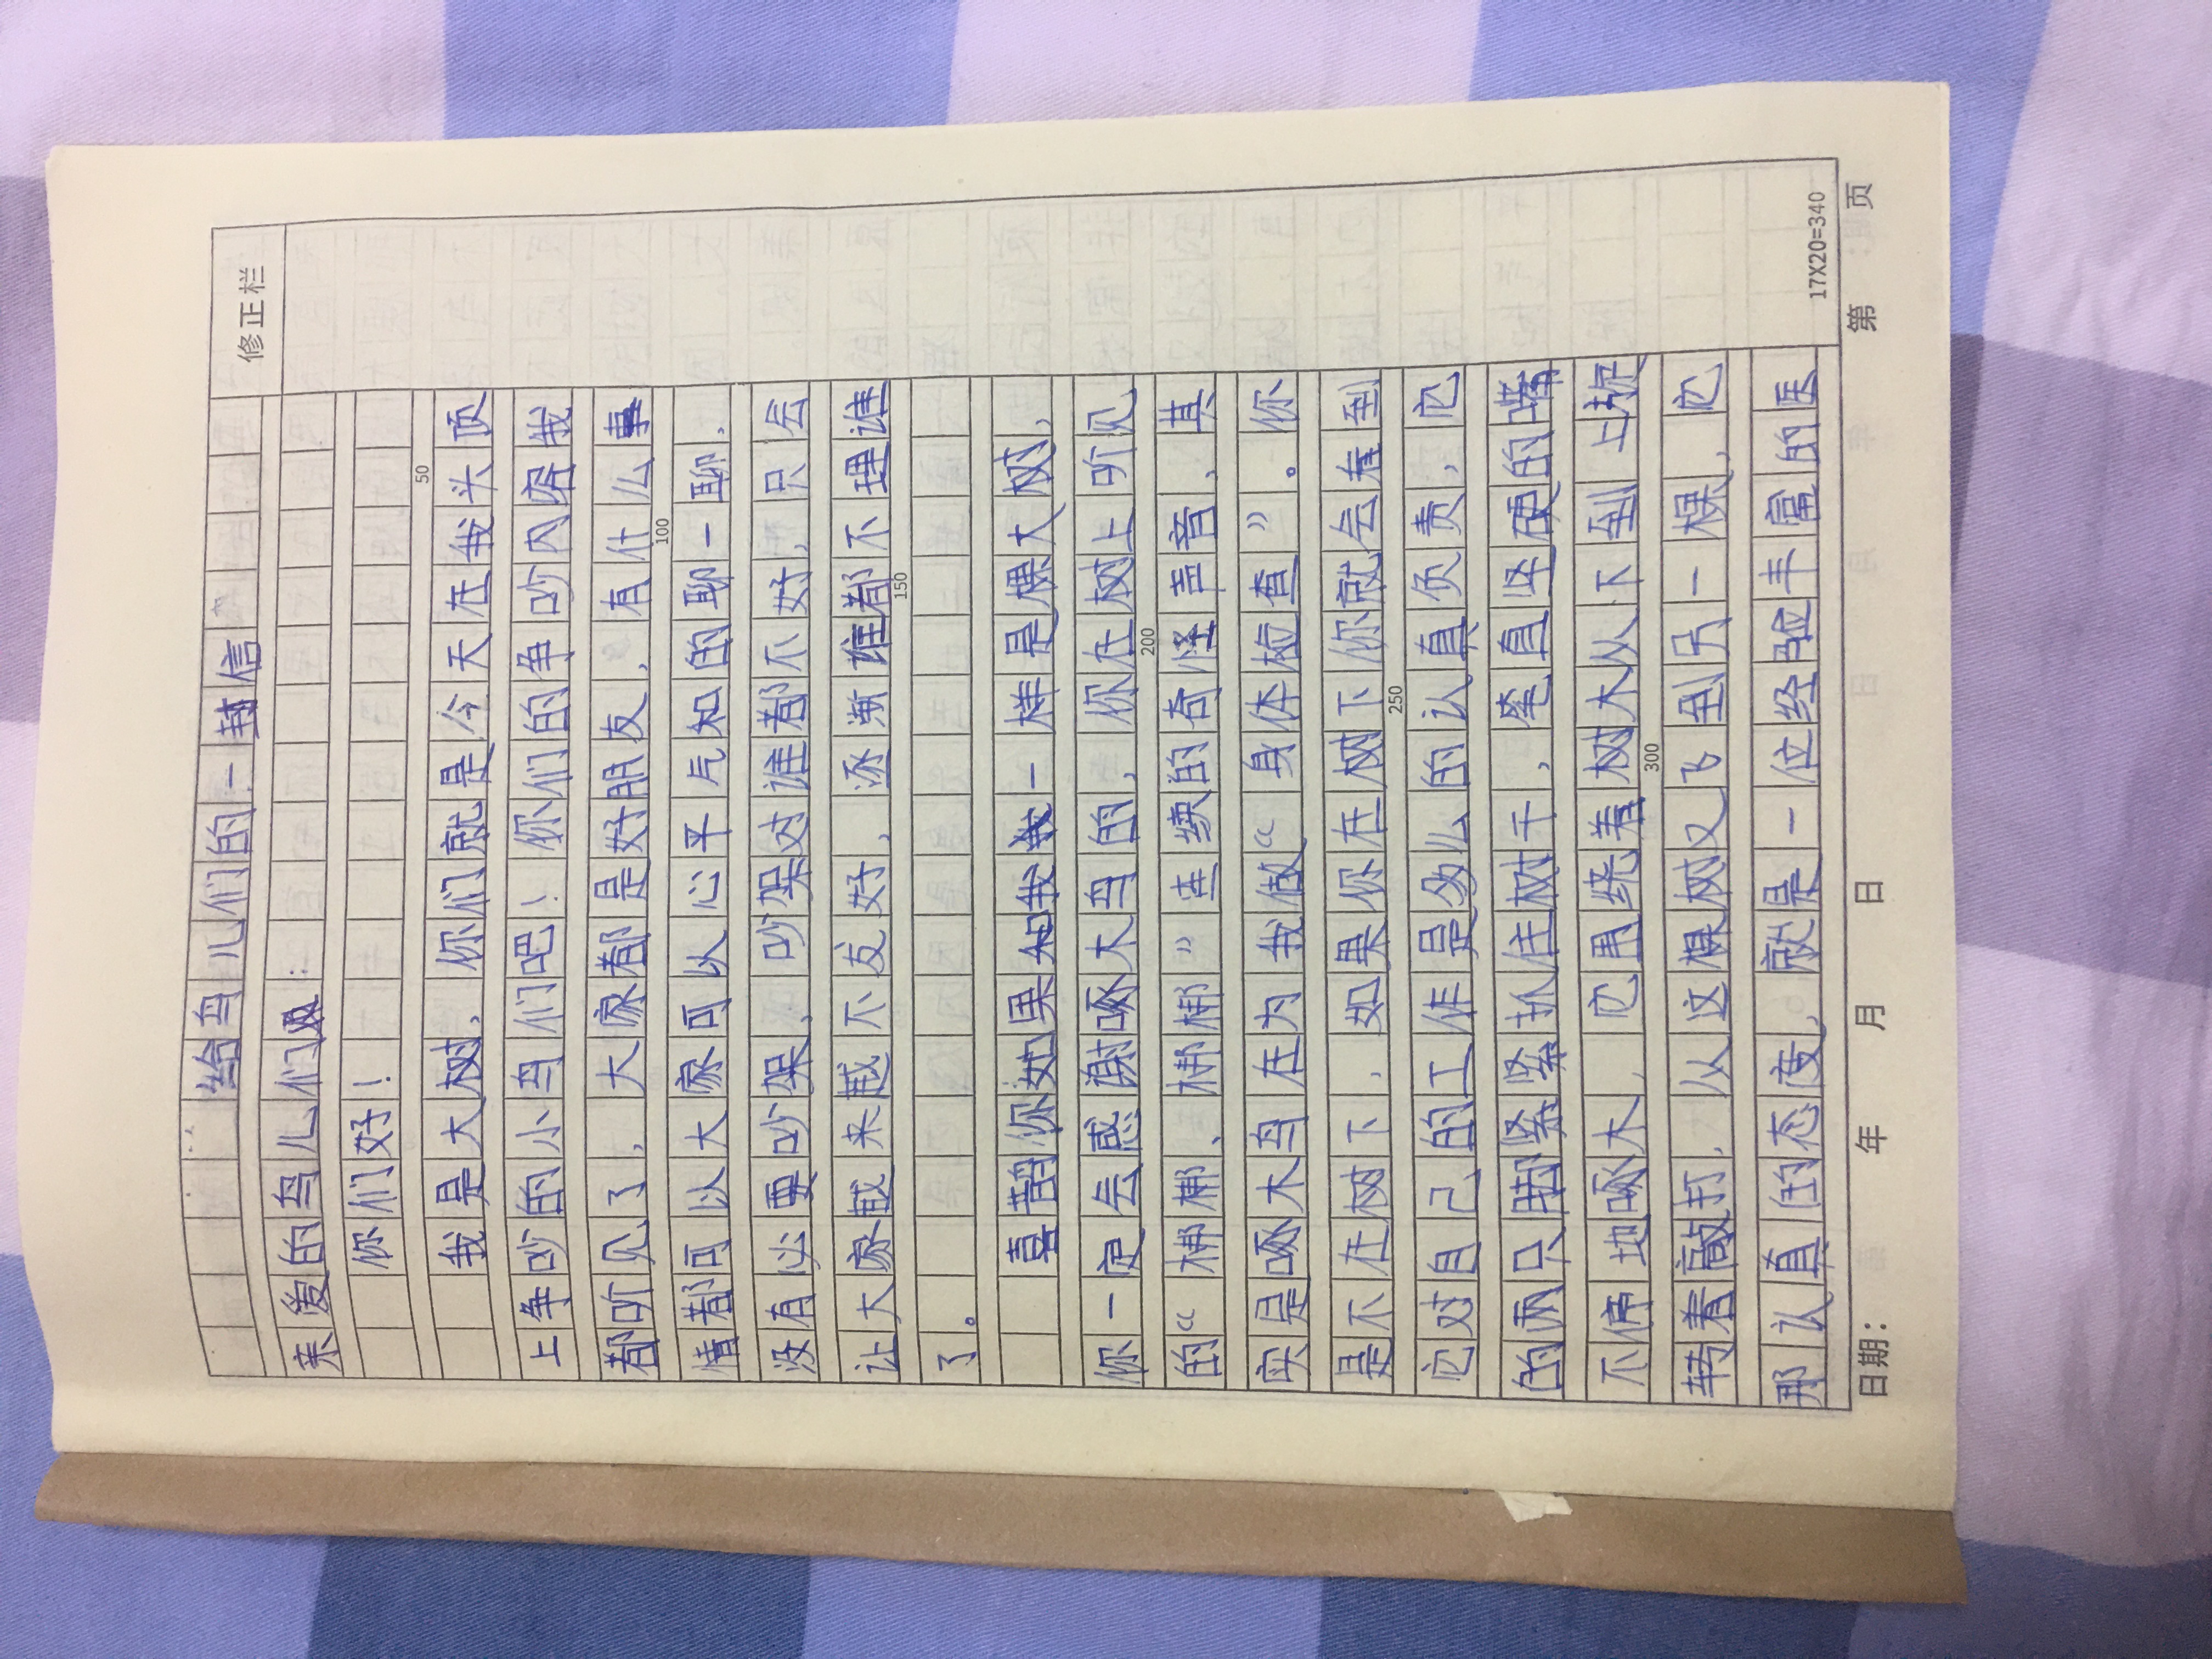 修正栏
给鸟儿们的一封信
亲爱的鸟儿们:
你们好!
我是大树,你们就是今天在我头顶
50
上争吵的小鸟们吧!你们的争吵内容我
都听见了,大家都是好朋友,有什么事
100
情都可以大家可以心平气和的聊一聊,
没有必要吵架,吵架对谁都不好,只会
让大家越来越不友好,逐渐谁都不理谁
150
了。
喜鹊你如果和我一样是棵大树,
你一定会感谢啄木鸟的,你在树上听见
200
的“梆梆、梆梆”连续的奇怪声音,其
实是啄木鸟在为我做“身体检查”。你
是不在树下,如果你在树下你就会看到
250
它对自己的工作是多么的认真负责,它
的两只脚紧紧扒住树干,笔直坚硬的嘴
不停地啄木,它围绕着树木从下到上
300
转着敲打,从这棵树又飞到另一棵,它
那认真的态度,就是一位经验丰富的医
17X20=340
日期: 年 月 日 第 页